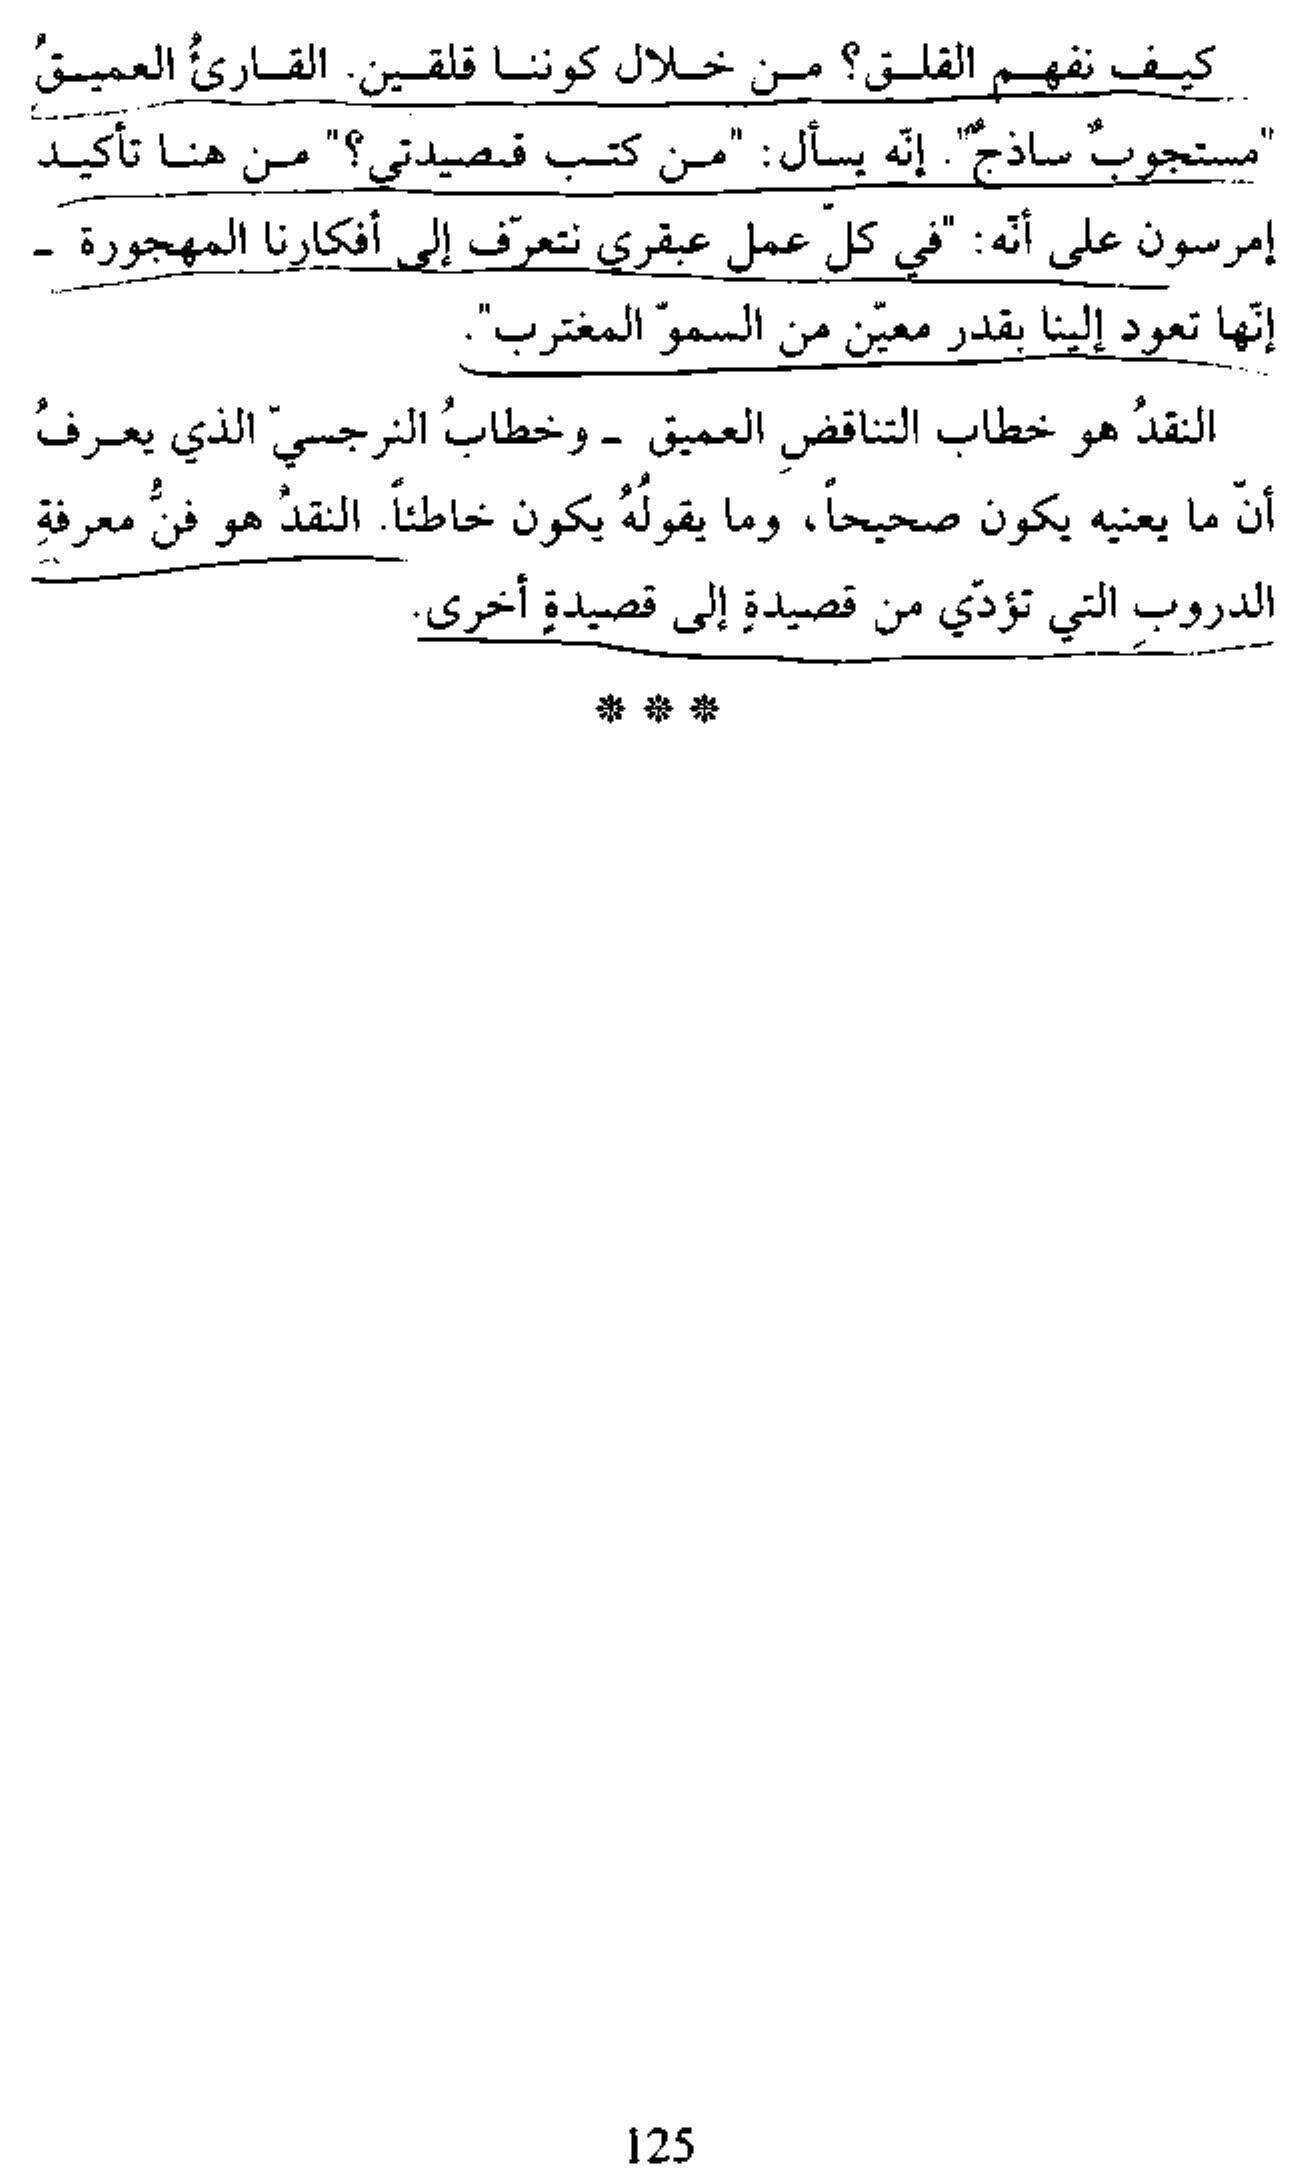 كيف نفهم القلق؟ من خلال كوننا قلقين. القارئُ العميقُ
"مستجوبٌ ساذجٌ". إنّه يسأل: "من كتب قصيدتي؟" من هنا تأكيد
إمرسون على أنّه: "في كلّ عمل عبقري نتعرّف إلى أفكارنا المهجورة -
إنّها تعود إلينا بقدر معيّن من السموّ المغترب".
النقدُ هو خطاب التناقضِ العميق - وخطابُ النرجسيّ الذي يعرفُ
أنّ ما يعنيه يكون صحيحاً، وما يقولُهُ يكون خاطئاً. النقدُ هو فنُّ معرفةِ
الدروبِ التي تؤدّي من قصيدةٍ إلى قصيدةٍ أخرى.
* * *
125